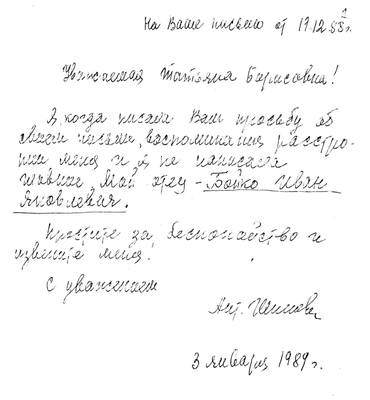 На Ваше письмо от 19.12.88 г
Уважаемая Татьяна Борисовна!
Я, когда писала Вам просьбу об
своем письме, воспоминания расстро-
или меня и я не написала
главное. Мой отец - Бойко Иван
Яковлевич.
Простите за беспокойство и
извените меня!
С уважением
Ант.
3 января 1989 г.